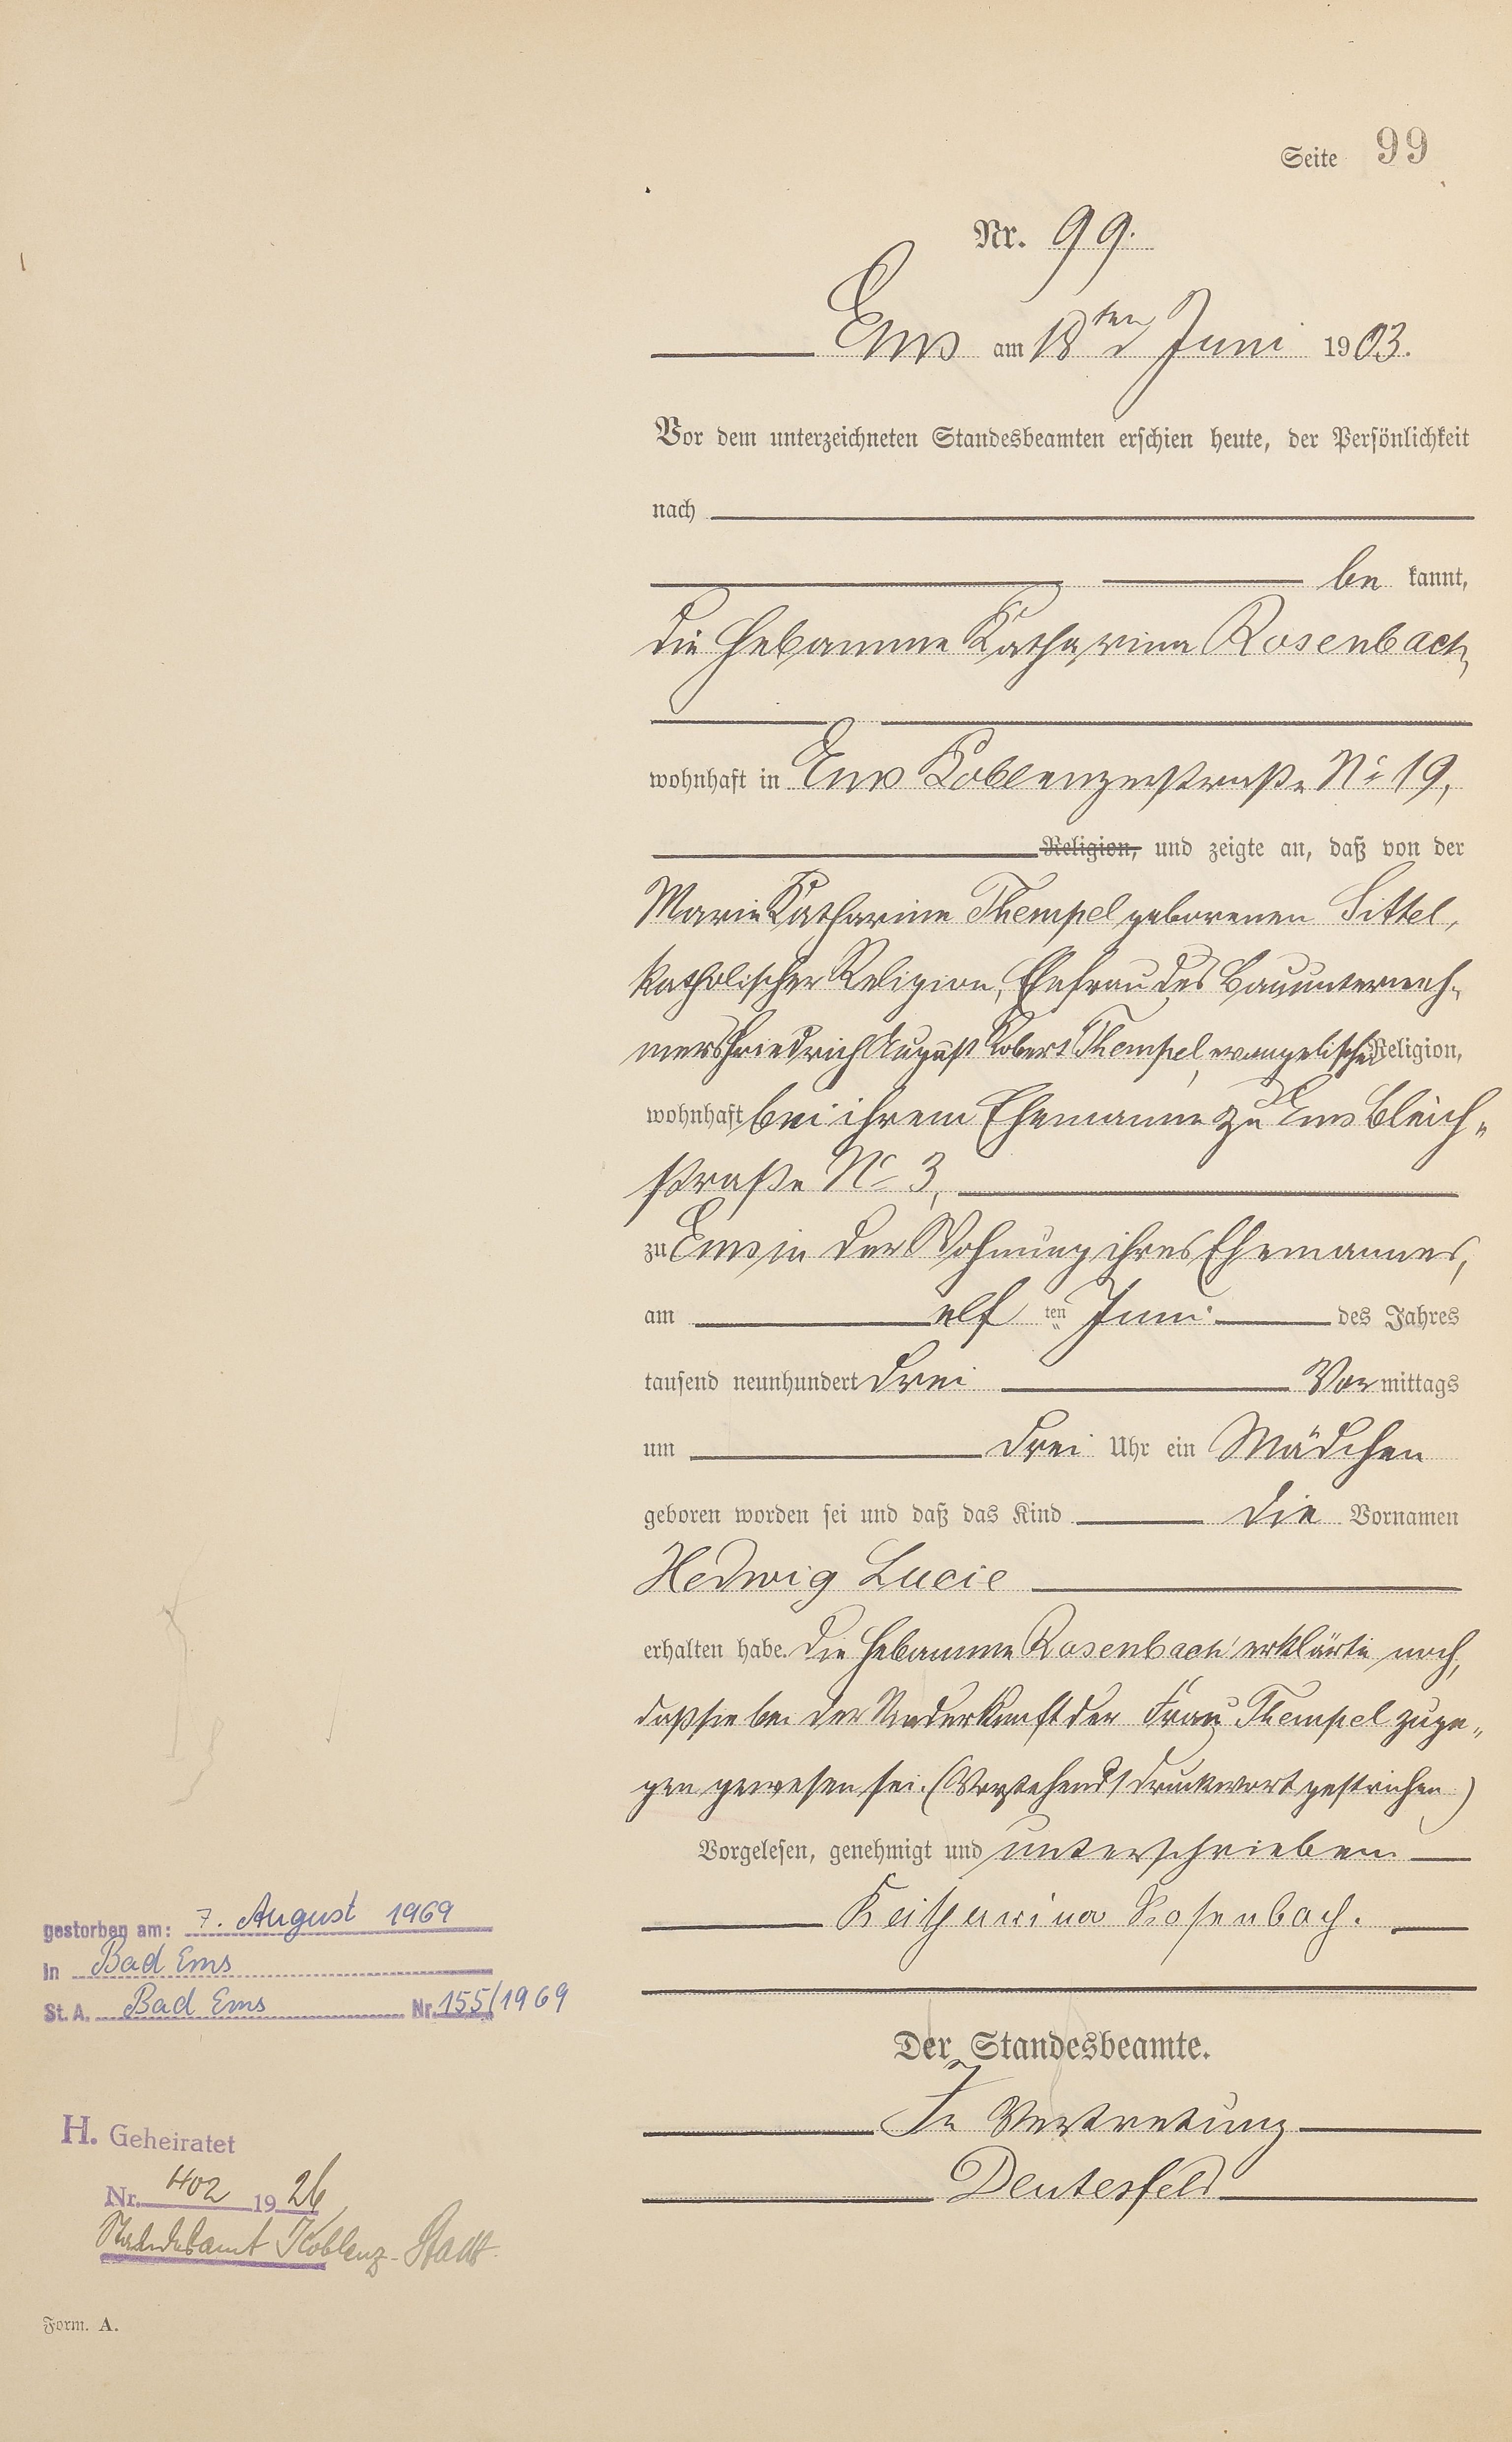 Seite 99
Nr. 99.
Ems am 18ten Juni 1903.
Vor dem unterzeichneten Standesbeamten erschien heute, der Persönlichkeit
nach
be kannt,
die Hebamme Katharina Rosenbach,
wohnhaft in Ems Koblenzerstraße No 19,
Religion, und zeigte an, daß von der
Marie Katharine Thempel geborenen Sittel,
katholischer Religion, Ehefrau des Bauunterneh-
mers Friedrich August Robert Thempel, evangelischer Religion,
wohnhaft bei ihrem Ehemanne zu Ems Bleich-
straße No 3,
zu Ems in der Wohnung ihres Ehemannes,
am elf ten Juni des Jahres
tausend neunhundert drei Vor mittags
um drei Uhr ein Mädchen
geboren worden sei und daß das Kind die Vornamen
Hedwig Lucie
erhalten habe. Die Hebamme Rosenbach erklärte noch,
daß sie bei der Niederkunft der Frau Thempel zuge-
gen gewesen sei. (Vorstehend 1 Druckwort gestrichen)
Vorgelesen, genehmigt und unterschrieben
Katharina Rosenbach.
Der Standesbeamte.
In Vertretung
Deutesfeld
gestorben am: 7. August 1969
in Bad Ems
St. A. Bad Ems Nr. 155/1969
H. Geheiratet
Nr. 402 1926
Standesamt Koblenz-Stadt
Form. A.